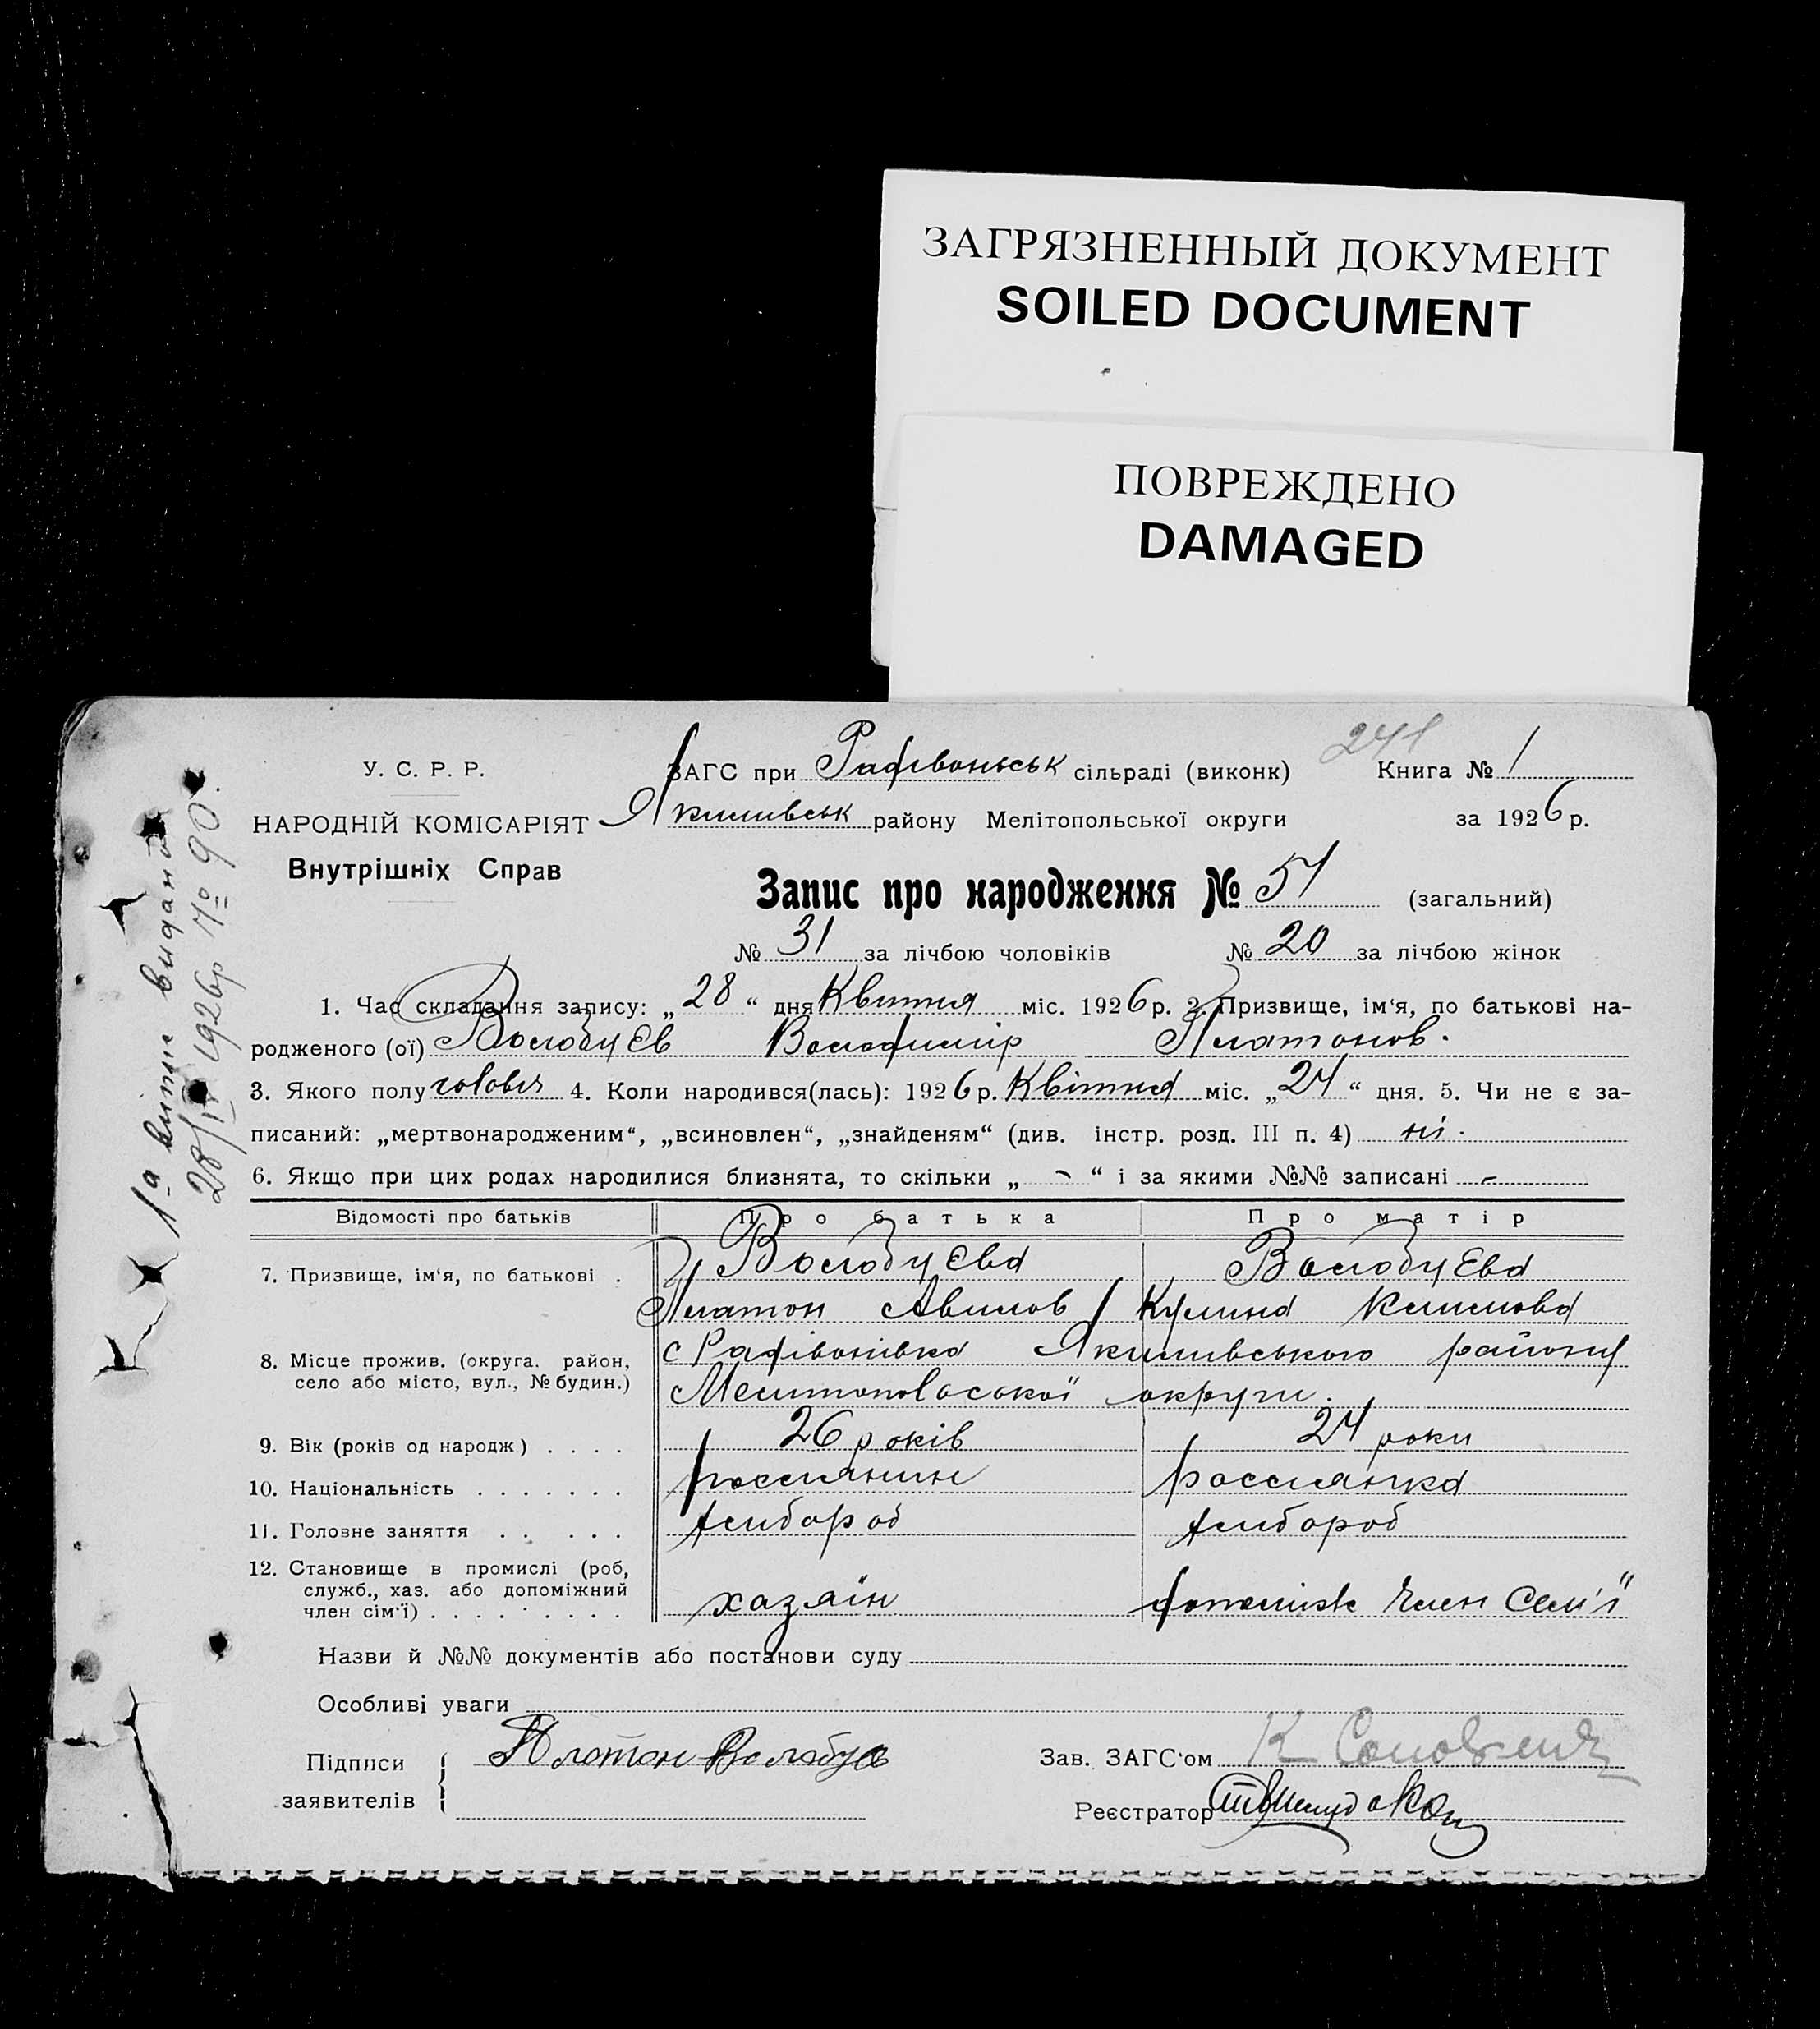 ЗАГРЯЗНЕННЫЙ ДОКУМЕНТ
SOILED DOCUMENT
ПОВРЕЖДЕНО
DAMAGED
241
У. С. Р. Р.
ЗАГС при Радівоньськ сільраді (виконк) Книга № 1
НАРОДНІЙ КОМІСАРІЯТ
Якимівськ району Мелітопольської округи за 1926 р.
Внутрішніх Справ
Запис про народження № 51 (загальний)
№ 31 за лічбою чоловіків № 20 за лічбою жінок
1. Час складання запису: „28“ дня Квітня міс. 1926 р. 2. Призвище, ім'я, по батькові на-
родженого (ої) Волобуєв Володимір Платонов.
3. Якого полу чоловіч 4. Коли народився(лась): 1926 р. Квітня міс. „24“ дня. 5. Чи не є за-
писаний: „мертвонародженим“, „всиновлен“, „знайденям“ (див. інстр. розд. III п. 4) ні.
6. Якщо при цих родах народилися близнята, то скільки „ - “ і за якими №№ записані -
Відомості про батьків Про батька Про матір
7. Призвище, ім'я, по батькові . Волобуєва Волобуєва
Платон Авилов Кулина Климова
8. Місце прожив. (округа. район, село або місто, вул., № будин.) с Радівонівка Якимивського району
Мелитопольської округи.
9. Вік (років од народж.) . . . . 26 років 24 роки
10. Національність . . . . . . . россиянин россиянка
11. Головне заняття . . . . . хлибороб хлибороб
12. Становище в промислі (роб,
служб., хаз. або допоміжний
член сім'ї) . . . . . . . . . хазяїн допоміжн член сем'ї
Назви й №№ документів або постанови суду
Особливі уваги
Підписи Платон Волобуев Зав. ЗАГС'ом К
заявителів
Реєстратор
1а витяг видана
28/IV 1926р № 90.